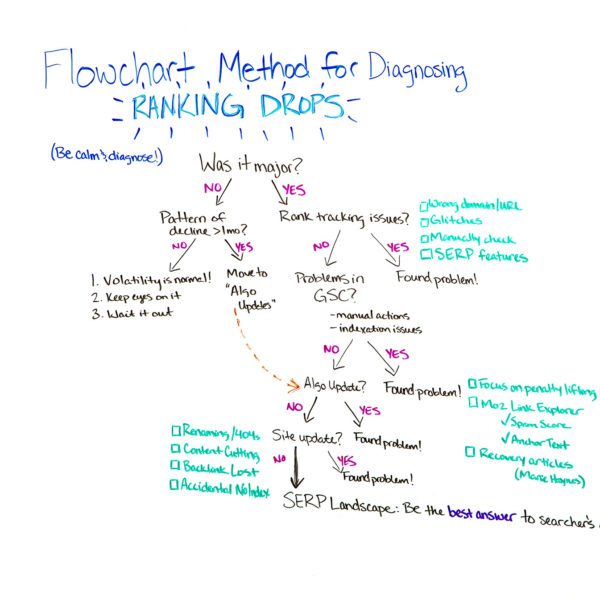 Flowchart Method for Diagnosing
RANKING DROPS
(Be calm & diagnose!)
Was it major?
NO
YES
Pattern of
decline >1mo?
NO
YES
1. Volatility is normal!
2. Keep eyes on it
3. Wait it out
Move to
"Algo
Updates"
Rank tracking issues?
Wrong domain/URL
Glitches
Manually check
SERP features
NO
YES
Problems in
GSC?
-manual actions
-indexation issues
Found problem!
NO
YES
Algo Update?
Found problem!
Focus on penalty lifting
Moz Link Explorer
✓Spam Score
✓Anchor Text
Recovery articles
(Marie Haynes)
NO
YES
Site update?
Found problem!
Renaming/404s
Content Cutting
Backlink Lost
Accidental NoIndex
NO
YES
Found problem!
SERP Landscape: Be the best answer to searcher's